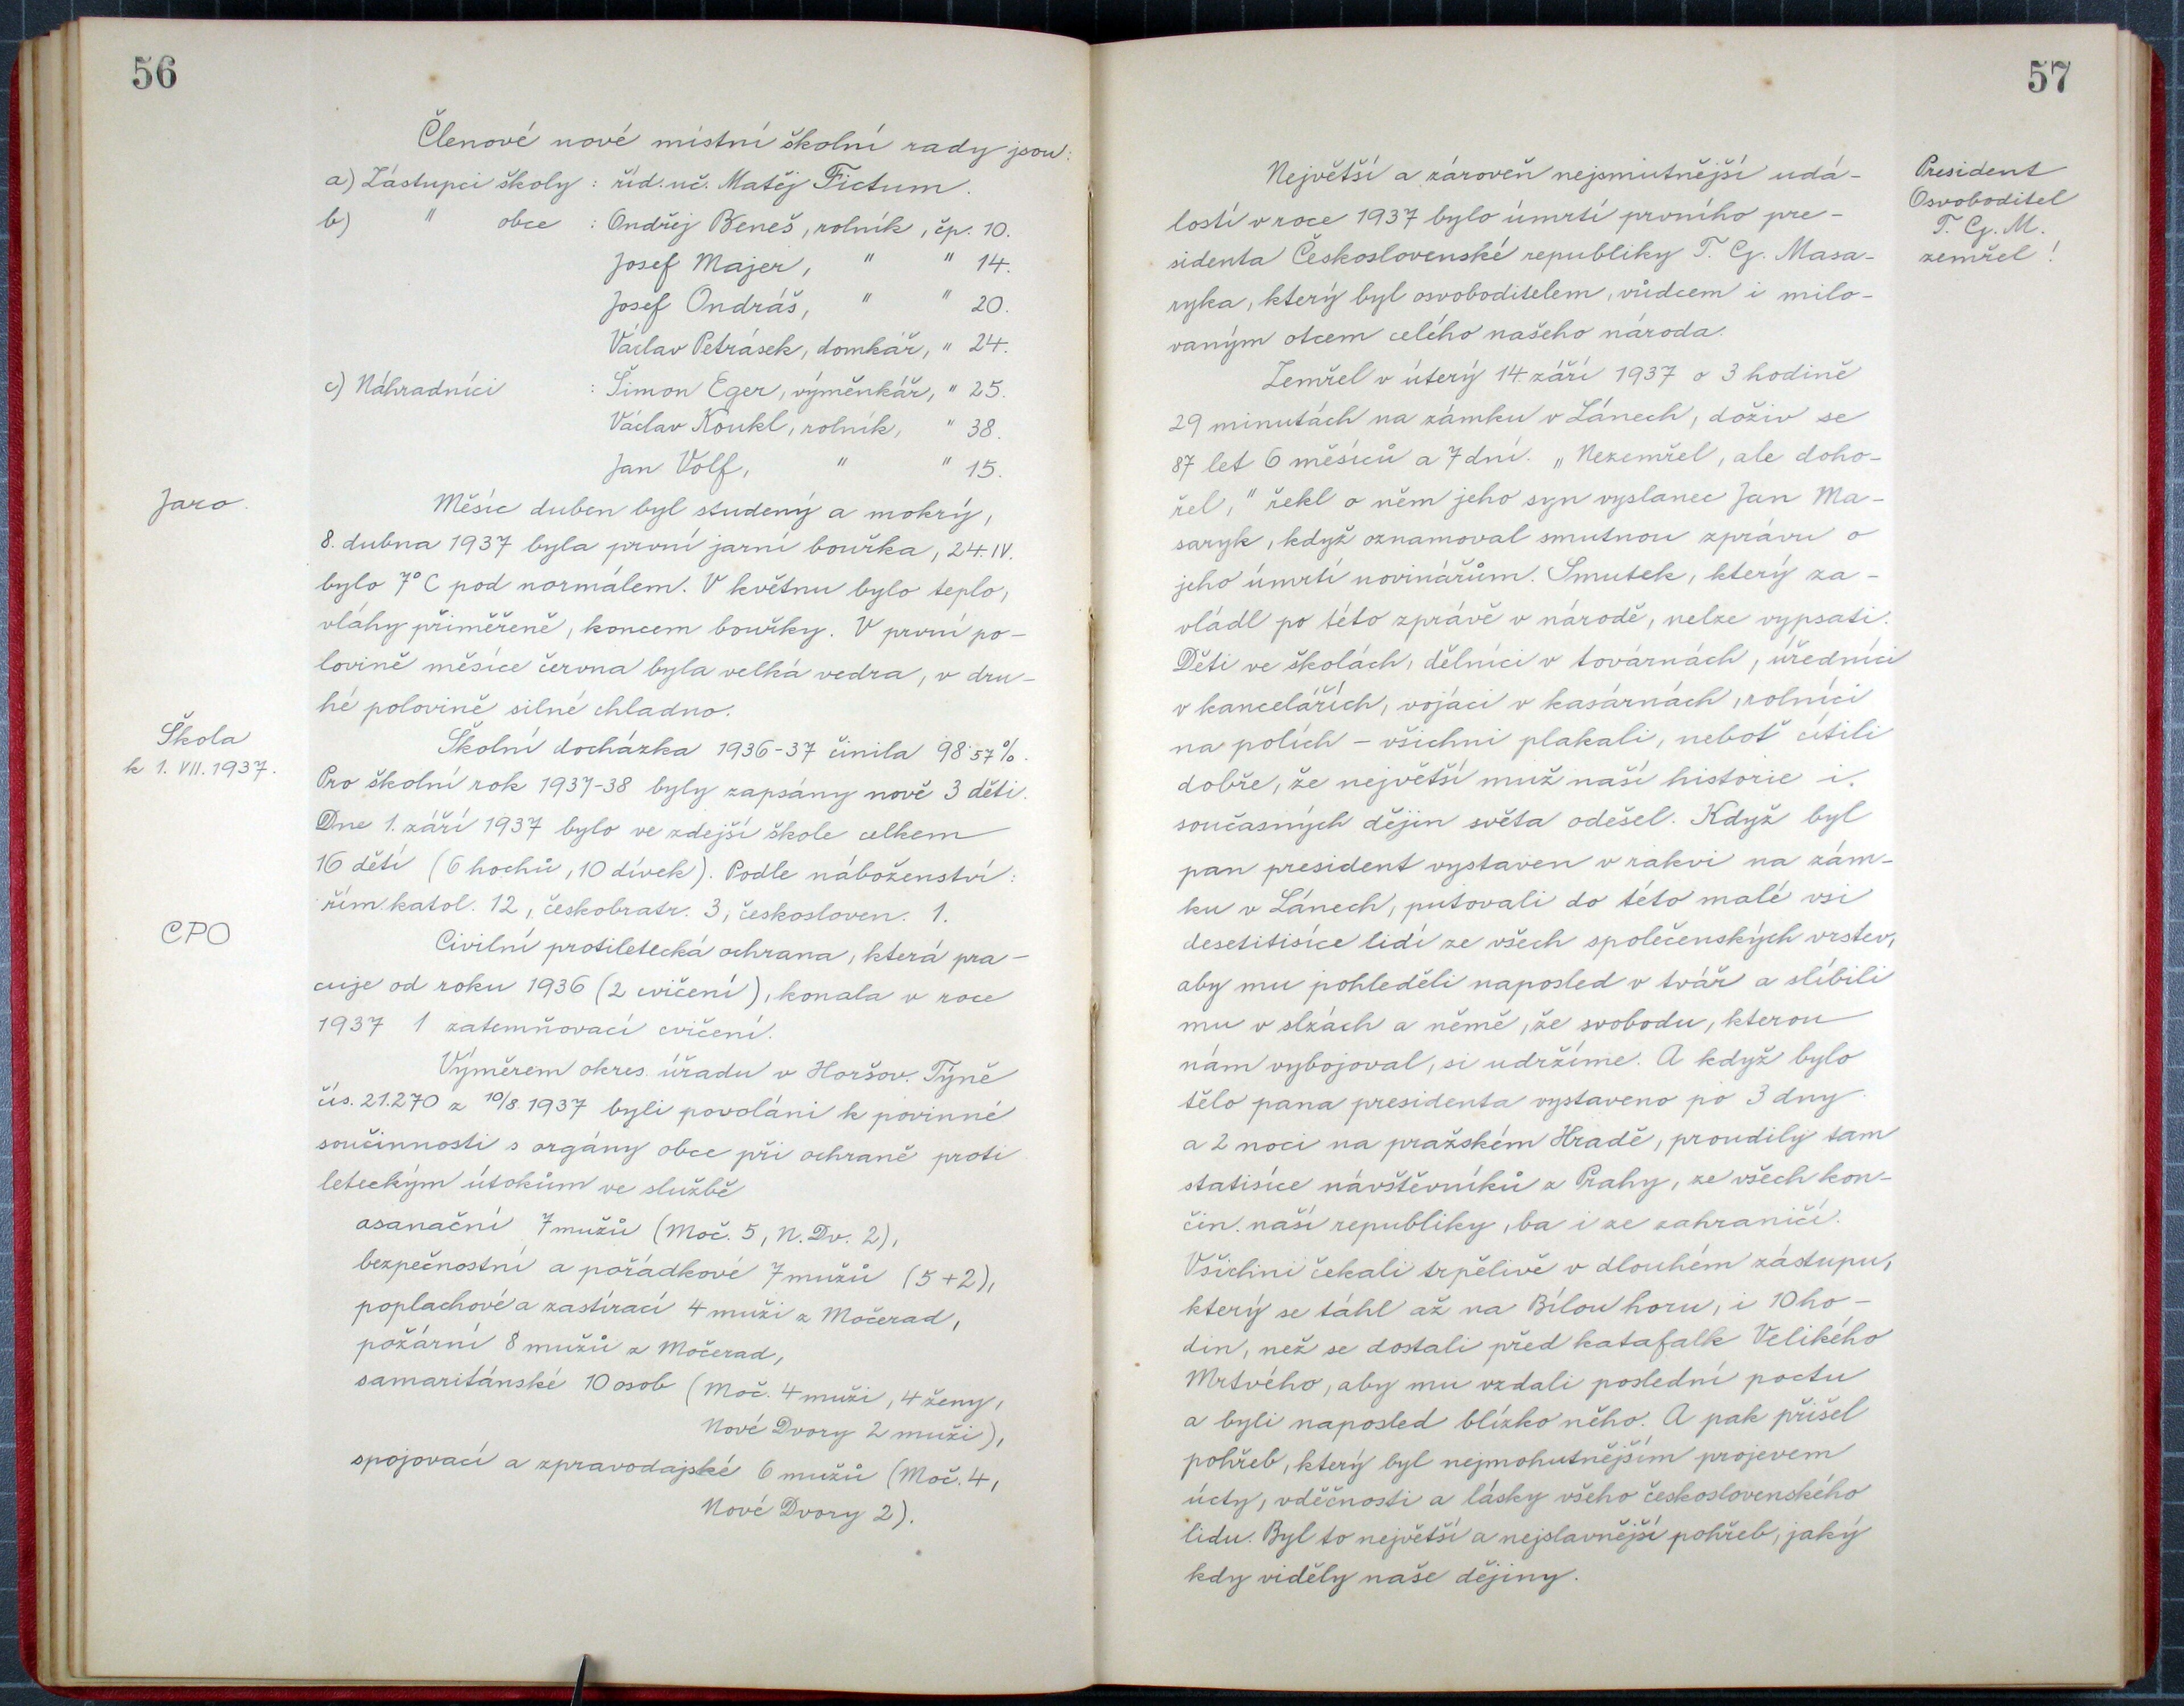 56
Členové nové místní školní rady jsou:
a) Zástupci školy : říd. uč. Matěj Fictum.
b) " obce : Ondřej Beneš, rolník, čp. 10.
Josef Majer, " " 14.
Josef Ondráš, " " 20.
Václav Petrásek, domkář, " 24.
c) Náhradníci : Šimon Eger, výměnkář, " 25.
Václav Koukl, rolník, " 38.
Jan Volf, " " 15.
Jaro.
Měsíc duben byl studený a mokrý,
8. dubna 1937 byla první jarní bouřka, 24. IV.
bylo 7° C pod normálem. V květnu bylo teplo,
vláhy přiměřeně, koncem bouřky. V první po-
lovině měsíce června byla velká vedra, v dru-
hé polovině silné chladno.
Škola
k 1. VII. 1937.
Školní docházka 1936-37 činila 98·57%.
Pro školní rok 1937-38 byly zapsány nově 3 děti.
Dne 1. září 1937 bylo ve zdejší škole celkem
16 dětí (6 hochů, 10 dívek). Podle náboženství:
řím. katol. 12, českobratr. 3, českosloven. 1.
CPO
Civilní protiletecká ochrana, která pra-
cuje od roku 1936 (2 cvičení), konala v roce
1937 1 zatemňovací cvičení.
Výměrem okres. úřadu v Horšov. Týně
čís. 21.270 z 10/8. 1937 byli povoláni k povinné
součinnosti s orgány obce při ochraně proti
leteckým útokům ve službě
asanační 7 mužů (Moč. 5, N. Dv. 2),
bezpečnostní a pořádkové 7 mužů (5+2),
poplachové a zastírací 4 muži z Močerad,
požární 8 mužů z Močerad,
samaritánské 10 osob (Moč. 4 muži, 4 ženy,
Nové Dvory 2 muži),
spojovací a zpravodajské 6 mužů (Moč. 4,
Nové Dvory 2).
57
President
Osvoboditel
T. G. M.
zemřel!
Největší a zároveň nejsmutnější udá-
lostí v roce 1937 bylo úmrtí prvního pre-
sidenta Československé republiky T. G. Masa-
ryka, který byl osvoboditelem, vůdcem i milo-
vaným otcem celého našeho národa.
Zemřel v úterý 14. září 1937 o 3 hodině
29 minutách na zámku v Lánech, doživ se
87 let 6 měsíců a 7 dní. „Nezemřel, ale doho-
řel," řekl o něm jeho syn vyslanec Jan Ma-
saryk, když oznamoval smutnou zprávu o
jeho úmrtí novinářům. Smutek, který za-
vládl po této zprávě v národě, nelze vypsati.
Děti ve školách, dělníci v továrnách, úředníci
v kancelářích, vojáci v kasárnách, rolníci
na polích - všichni plakali, neboť cítili
dobře, že největší muž naší historie i
současných dějin světa odešel. Když byl
pan president vystaven v rakvi na zám-
ku v Lánech, putovali do této malé vsi
desetitisíce lidí ze všech společenských vrstev,
aby mu pohleděli naposled v tvář a slíbili
mu v slzách a němě, že svobodu, kterou
nám vybojoval, si udržíme. A když bylo
tělo pana presidenta vystaveno po 3 dny
a 2 noci na pražském Hradě, proudily tam
statisíce návštěvníků z Prahy, ze všech kon-
čin naší republiky, ba i ze zahraničí.
Všichni čekali trpělivě v dlouhém zástupu,
který se táhl až na Bílou horu, i 10 ho-
din, než se dostali před katafalk Velikého
Mrtvého, aby mu vzdali poslední poctu
a byli naposled blízko něho. A pak přišel
pohřeb, který byl nejmohutnějším projevem
úcty, vděčnosti a lásky všeho československého
lidu. Byl to největší a nejslavnější pohřeb, jaký
kdy viděly naše dějiny.